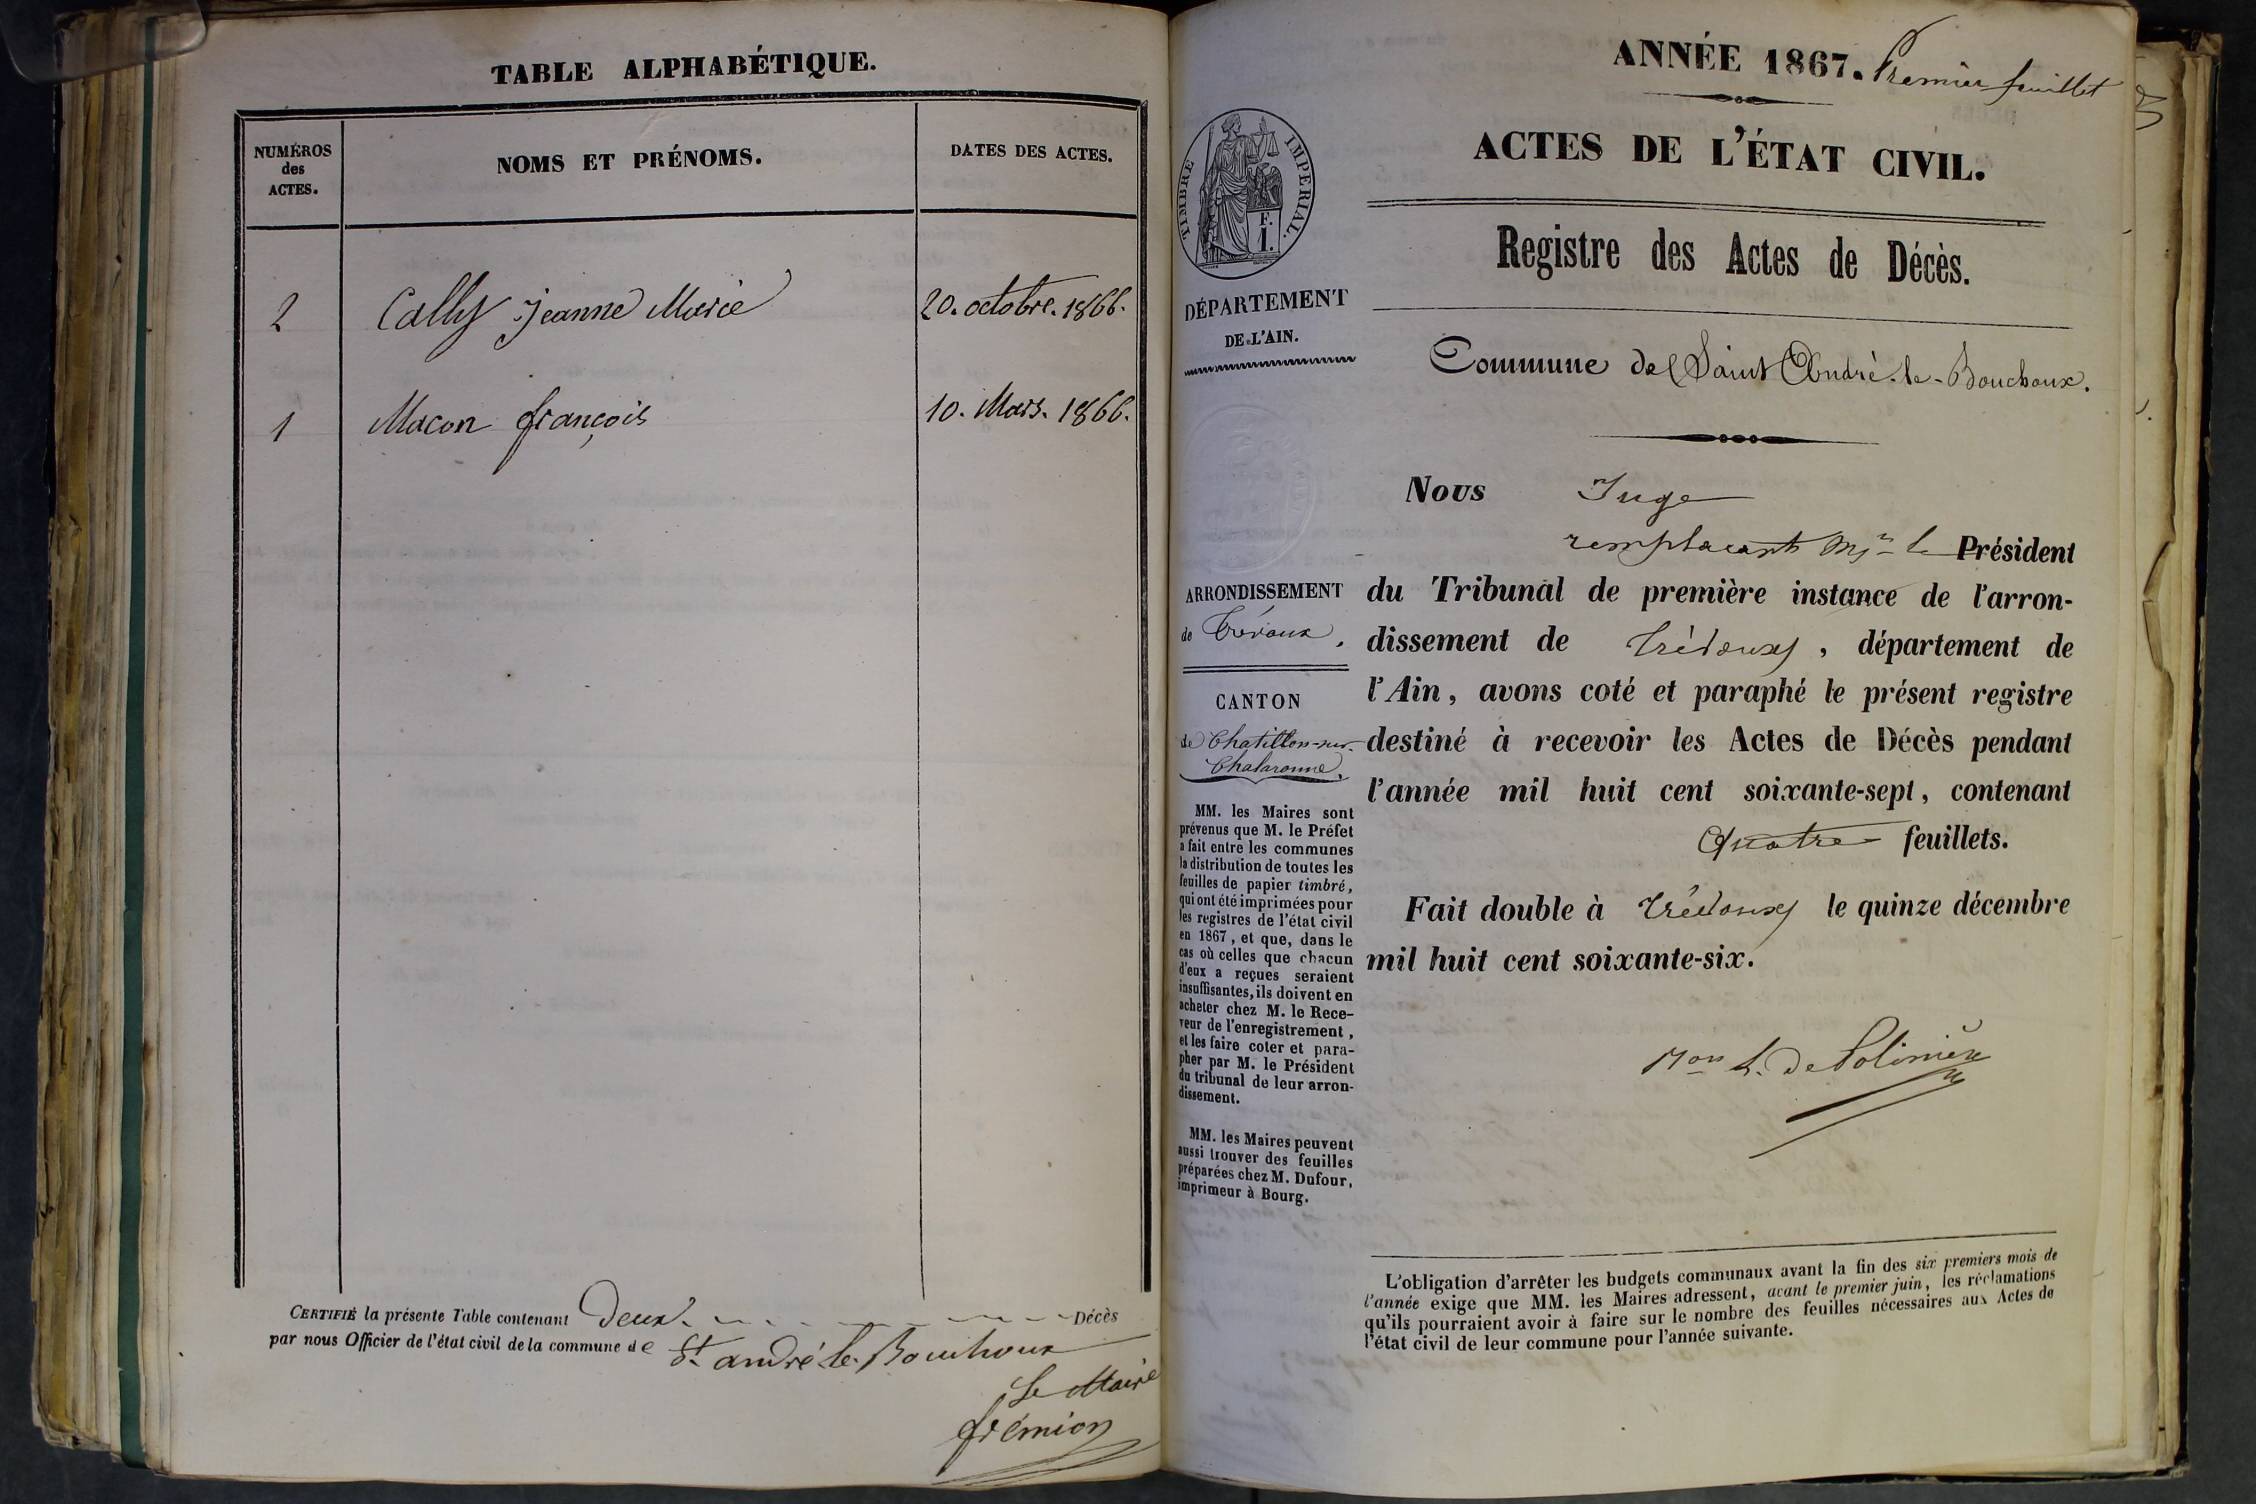 TABLE ALPHABÉTIQUE.
NUMÉROS
des
ACTES.
NOMS ET PRÉNOMS.
DATES DES ACTES.
2 Cally Jeanne Marie 20. octobre. 1866.
1 Macon françois 10. Mars. 1866.
CERTIFIÉ la présente Table contenant Deux Décès
par nous Officier de l'état civil de la commune de St. andré le Bouchoux
Le Maire
frémion
ANNÉE 1867. Premier feuillet
ACTES DE L'ÉTAT CIVIL.
Registre des Actes de Décès.
TIMBRE IMPERIAL.
F.
1.
DÉPARTEMENT
DE L'AIN.
Commune de Saint André-le-Bouchoux.
Nous Juge
remplacant Mr le Président
du Tribunal de première instance de l'arron-
dissement de Trévoux, département de
l'Ain, avons coté et paraphé le présent registre
destiné à recevoir les Actes de Décès pendant
l'année mil huit cent soixante-sept, contenant
Quatre feuillets.
Fait double à Trévoux le quinze décembre
mil huit cent soixante-six.
de Polinière
ARRONDISSEMENT
de Trévoux,
CANTON
de Chatillon-sur-
Chalaronne.
MM. les Maires sont
prévenus que M. le Préfet
a fait entre les communes
la distribution de toutes les
feuilles de papier timbré,
qui ont été imprimées pour
les registres de l'état civil
en 1867, et que, dans le
cas où celles que chacun
d'eux a reçues seraient
insuffisantes, ils doivent en
acheter chez M. le Rece-
veur de l'enregistrement,
et les faire coter et para-
pher par M. le Président
du tribunal de leur arron-
dissement.
MM. les Maires peuvent
aussi trouver des feuilles
préparées chez M. Dufour,
imprimeur à Bourg.
L'obligation d'arrêter les budgets communaux avant la fin des six premiers mois de
l'année exige que MM. les Maires adressent, avant le premier juin, les réclamations
qu'ils pourraient avoir à faire sur le nombre des feuilles nécessaires aux Actes de
l'état civil de leur commune pour l'année suivante.